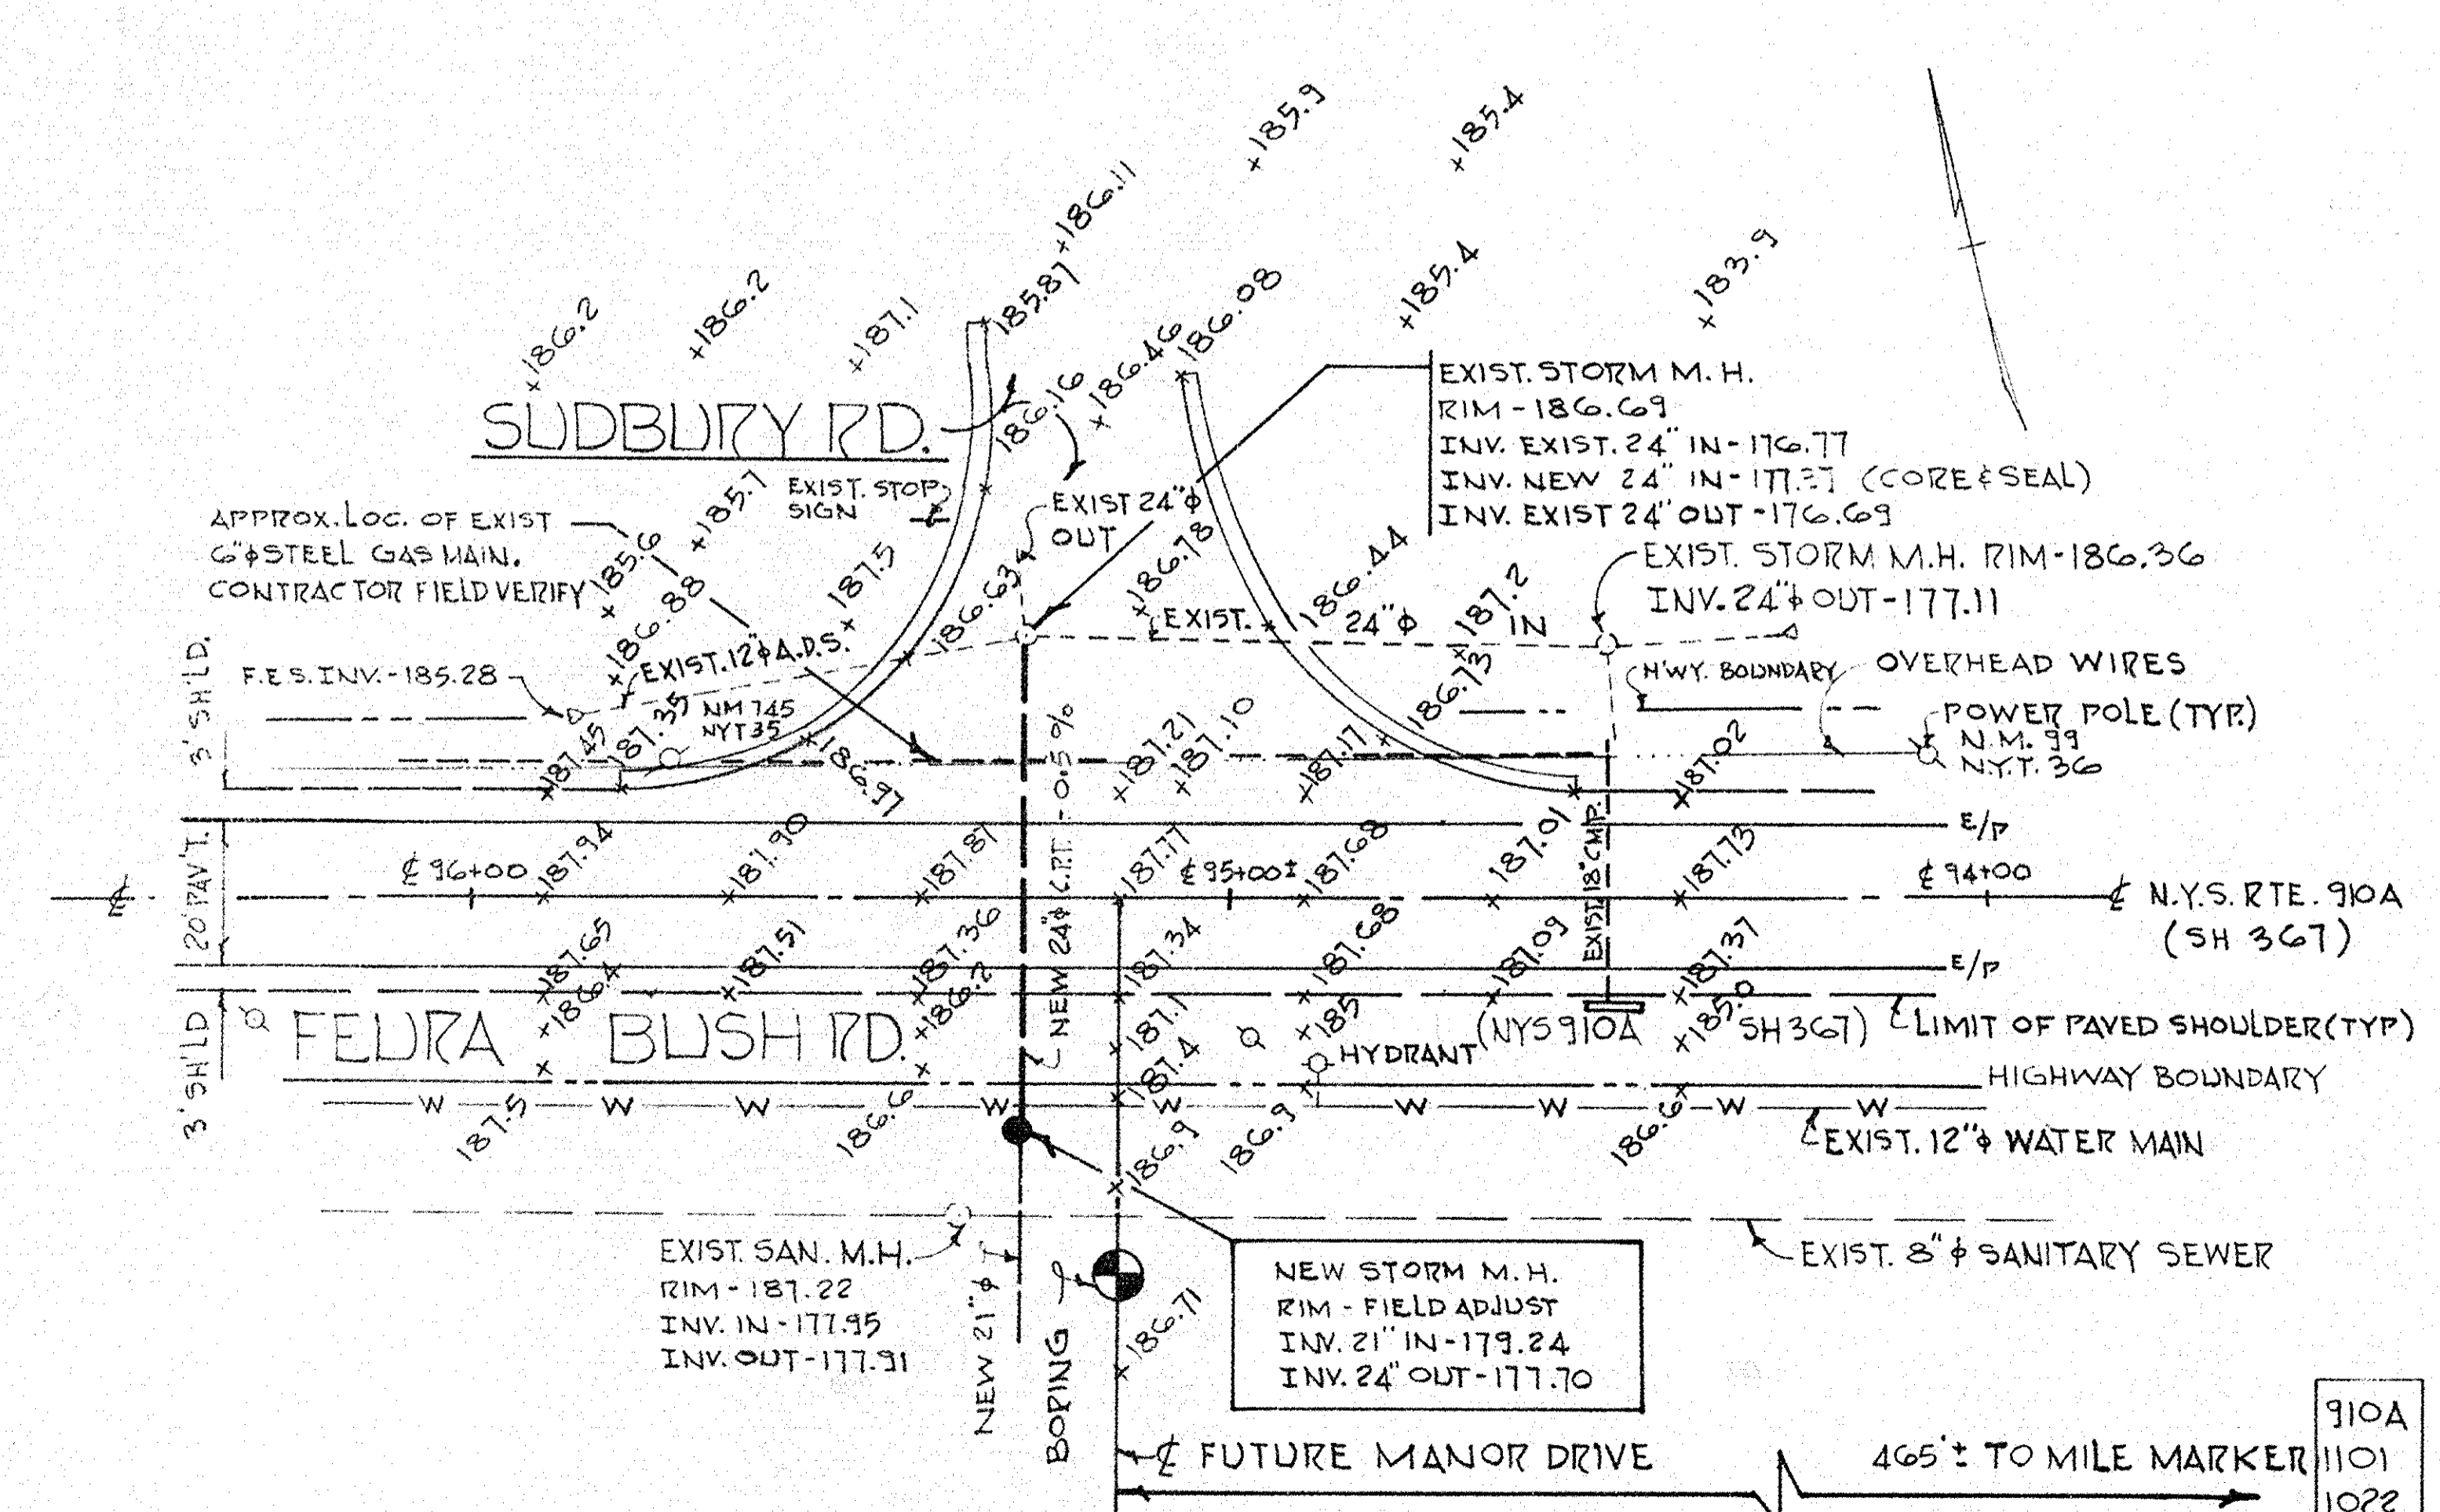 +185.9
+185.4
+186.11
+183.9
+185.4
186.08
185.87
+186.2
+186.2
+187.1
+186.46
186.16
SUDBURY RD.
EXIST. STORM M.H.
RIM - 186.69
INV. EXIST. 24" IN - 176.77
INV. NEW 24" IN - (CORE & SEAL)
INV. EXIST 24" OUT - 176.69
+185.7
EXIST. STOP
SIGN
EXIST 24"ϕ
OUT
APPROX. LOC. OF EXIST
6"ϕ STEEL GAS MAIN.
CONTRACTOR FIELD VERIFY
185.6
186.88
187.5
186.63
186.78
186.44
187.2
EXIST. STORM M.H. RIM-186.36
INV. 24"ϕ OUT - 177.11
EXIST. 24"ϕ IN
3' SH'LD.
F.E.S. INV. - 185.28
EXIST. 12"ϕ A.D.S.
186.73
HWY. BOUNDARY
OVERHEAD WIRES
NM 745
NYT 35
POWER POLE (TYP.)
N.M. 99
N.Y.T. 36
187.45
187.35
186.97
+187.21
+187.10
+187.17
187.02
NEW 24"ϕ C.P.P. - 0.5%
E/P
20' PAV'T.
℄ 96+00
187.94
187.90
187.87
187.77
℄ 95+00±
187.68
187.01
EXIST. 18" CMP.
187.73
℄ 94+00
℄
℄ N.Y.S. RTE. 910A
(SH 367)
187.65
187.51
187.36
187.34
187.68
187.09
187.37
E/P
186.4
186.2
187.1
185
185.0
3' SH'LD
FEURA BUSH RD.
(NYS 910A SH 367)
LIMIT OF PAVED SHOULDER (TYP)
HYDRANT
187.4
HIGHWAY BOUNDARY
W W W W W W W W W
187.5
186.6
186.9
186.9
186.6
EXIST. 12"ϕ WATER MAIN
EXIST. 8"ϕ SANITARY SEWER
EXIST. SAN. M.H.
RIM - 187.22
INV. IN - 177.95
INV. OUT - 177.91
NEW 21"ϕ
BORING
186.71
NEW STORM M.H.
RIM - FIELD ADJUST
INV. 21" IN - 179.24
INV. 24" OUT - 177.70
℄ FUTURE MANOR DRIVE
465'± TO MILE MARKER
910A
1101
1022